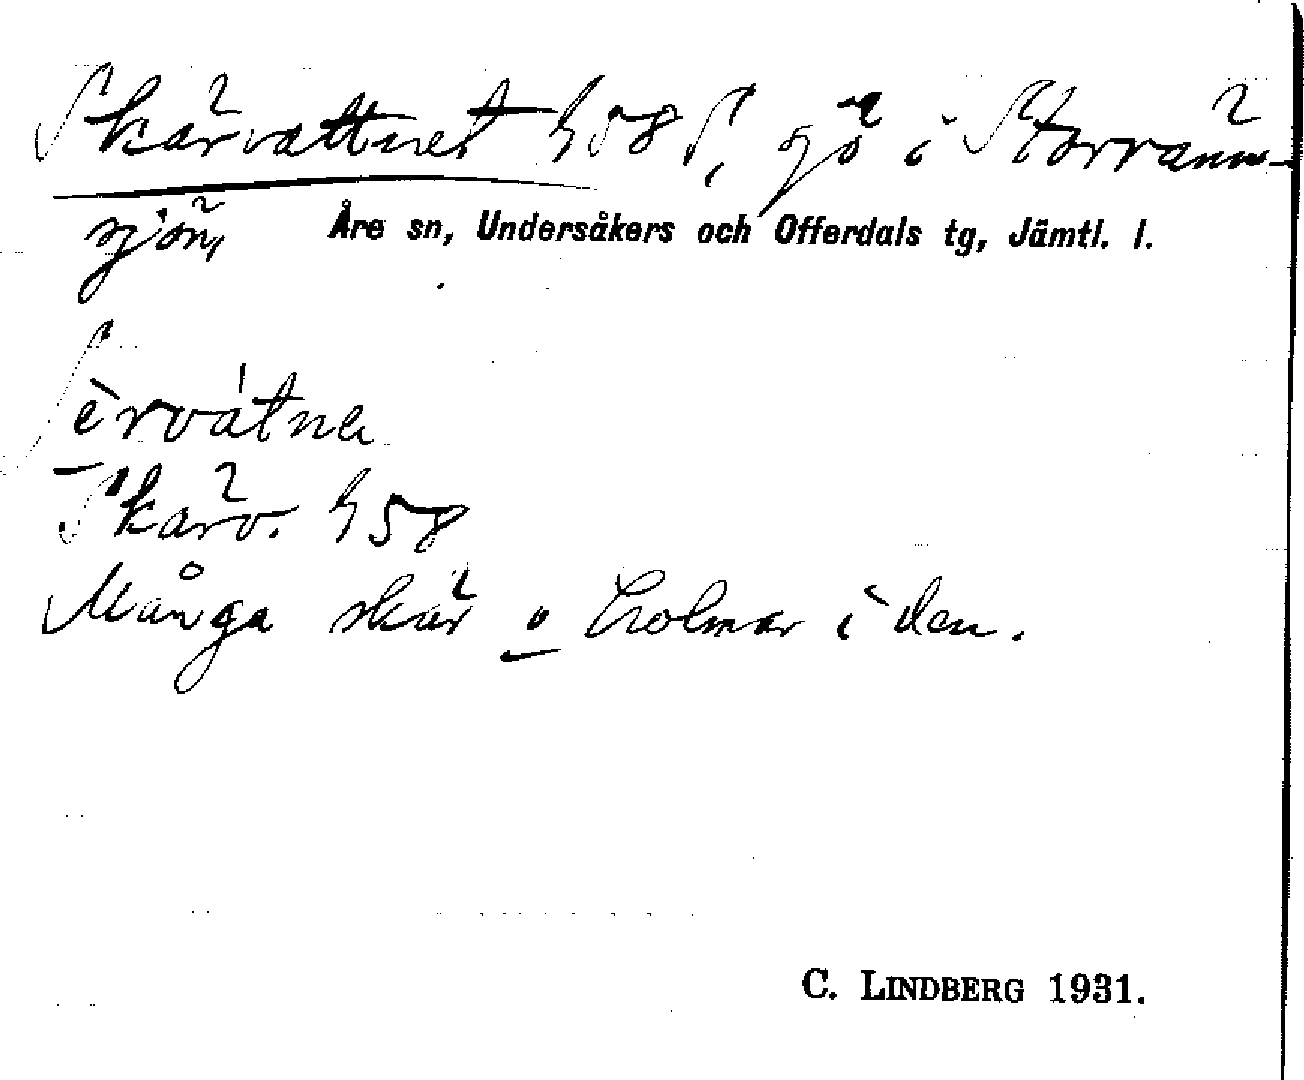 Skärvattnet 458 S, gö i Storränn-
sjön, Åre sn, Undersåkers och Offerdals tg, Jämtl. l.
Sèrvátne
Skärv. 458
Många skär o holmar i den.
C. LINDBERG 1931.